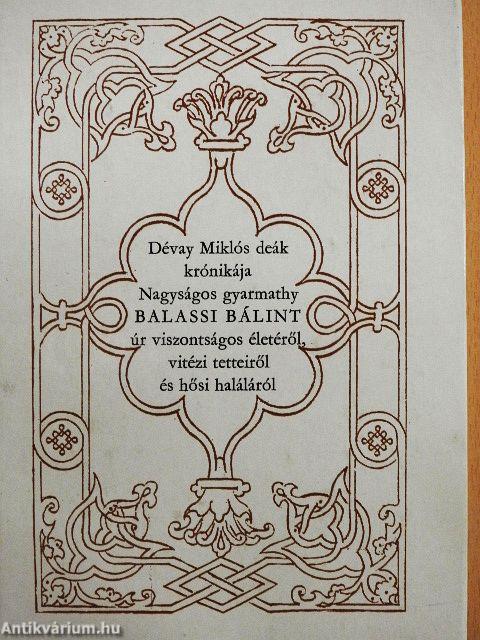 Dévay Miklós deák
krónikája
Nagyságos gyarmathy
BALASSI BÁLINT
úr viszontságos életéről,
vitézi tetteiről
és hősi haláláról
Antikvárium.hu